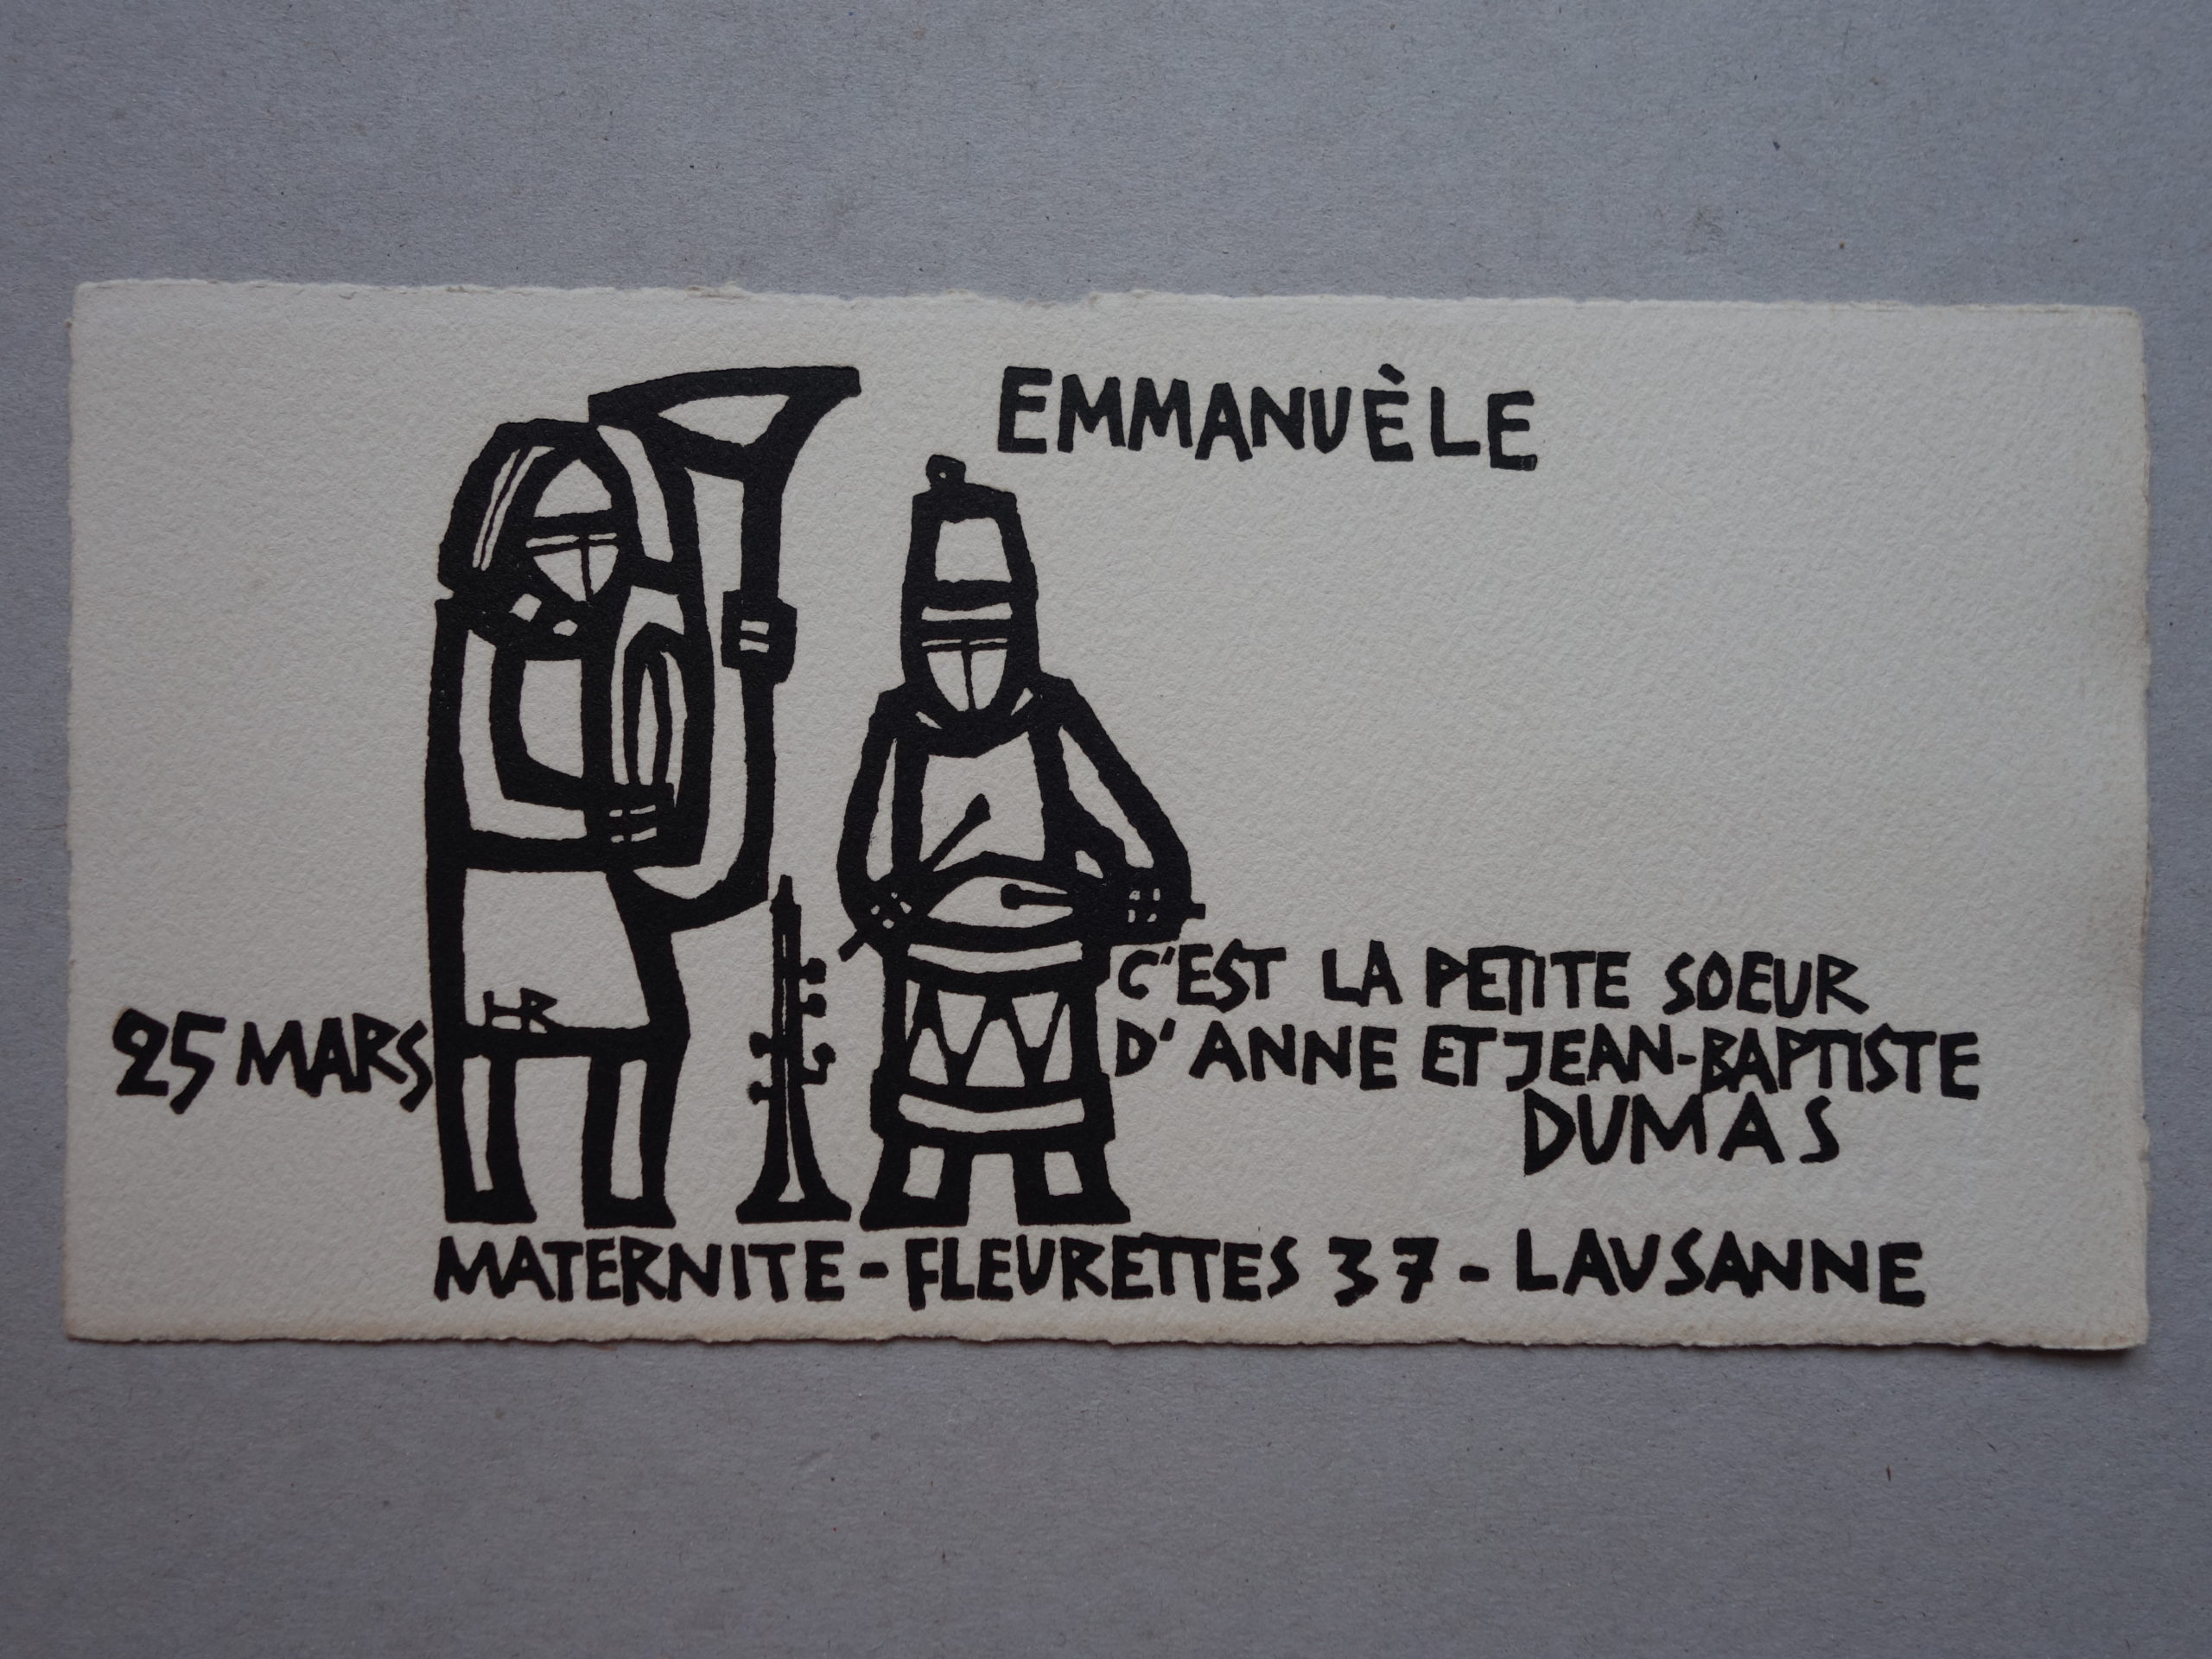 EMMANUÈLE
25 MARS
HR
C'EST LA PETITE SOEUR
D'ANNE ET JEAN-BAPTISTE
DUMAS
MATERNITE - FLEURETTES 37 - LAUSANNE